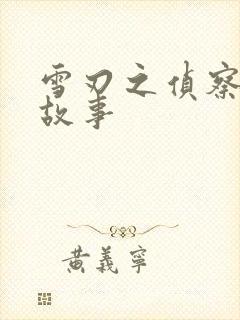 雪刃之偵察
故事
黃義寧